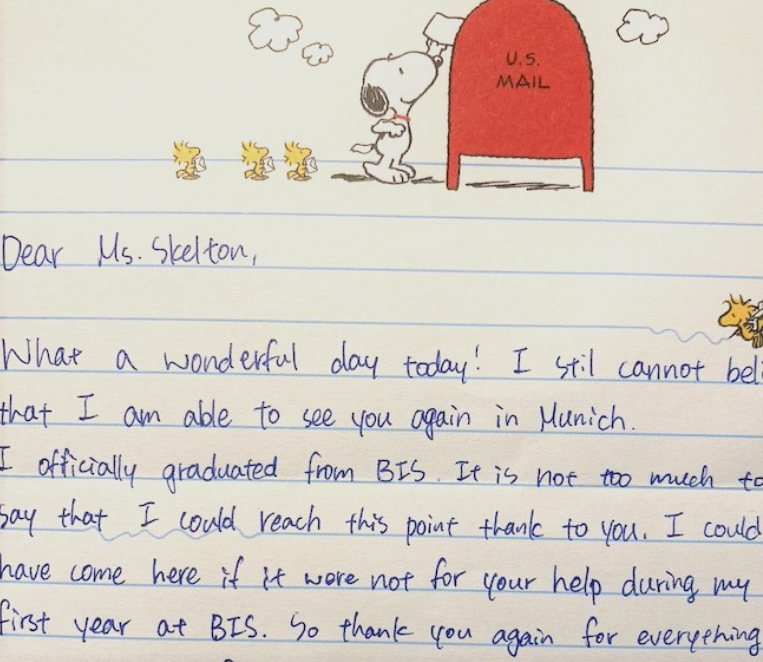 U.S.
MAIL
Dear Ms. Skelton,
What a wonderful day today! I stil cannot beli
that I am able to see you again in Munich.
I officially graduated from BIS. It is not too much to
say that I could reach this point thank to you. I could
have come here if it were not for your help during my
first year at BIS. So thank you again for everything